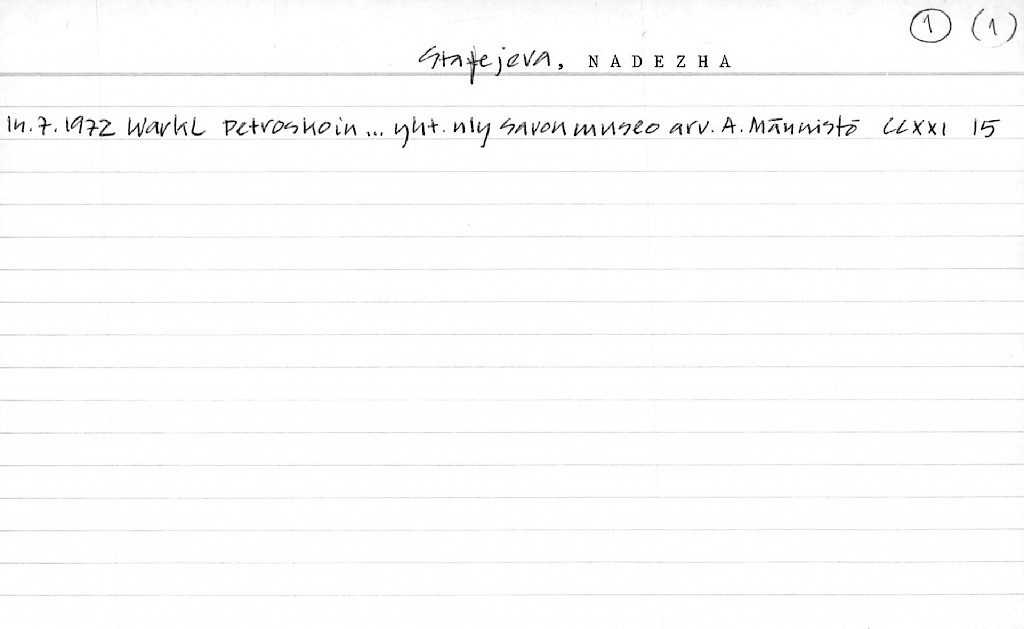 1 (1)
Stafejeva, NADEZHA
14.7.1972 WarkL Petroskoin ... yht. nly Savon museo arv. A. Männistö CLXXI 15